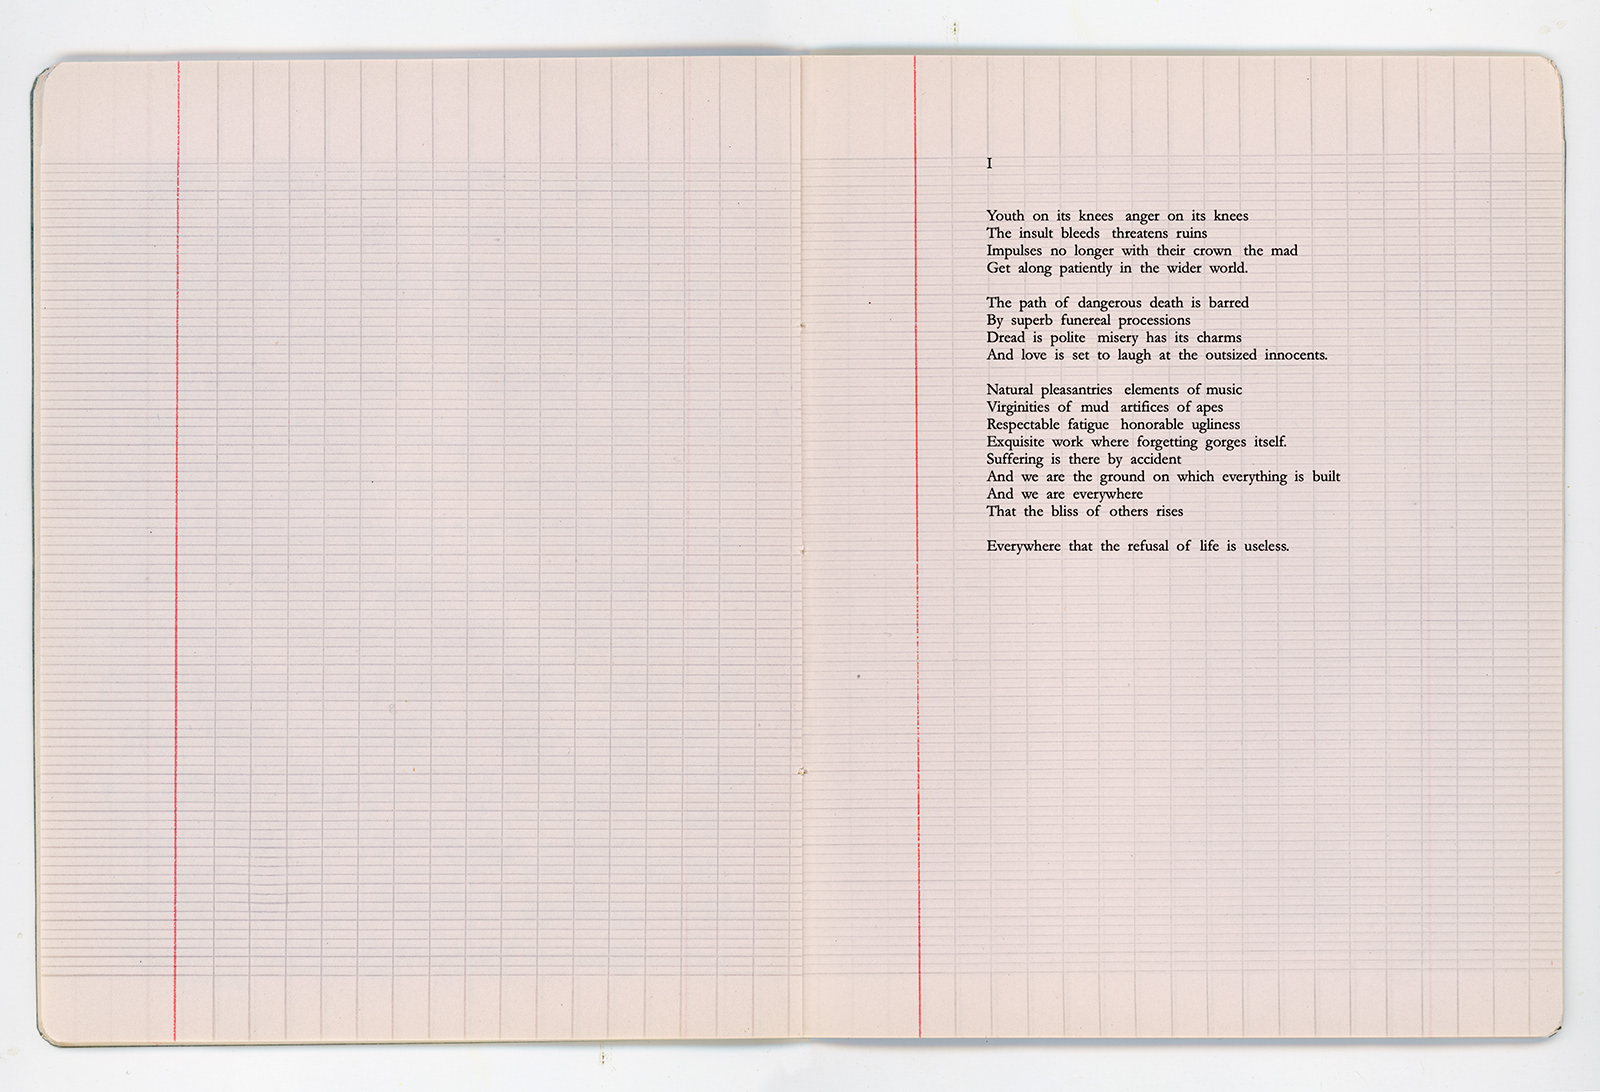 I
Youth on its knees  anger on its knees
The insult bleeds  threatens ruins
Impulses no longer with their crown  the mad
Get along patiently in the wider world.
The path of dangerous death is barred
By superb funereal processions
Dread is polite  misery has its charms
And love is set to laugh at the outsized innocents.
Natural pleasantries  elements of music
Virginities of mud  artifices of apes
Respectable fatigue  honorable ugliness
Exquisite work where forgetting gorges itself.
Suffering is there by accident
And we are the ground on which everything is built
And we are everywhere
That the bliss of others rises
Everywhere that the refusal of life is useless.